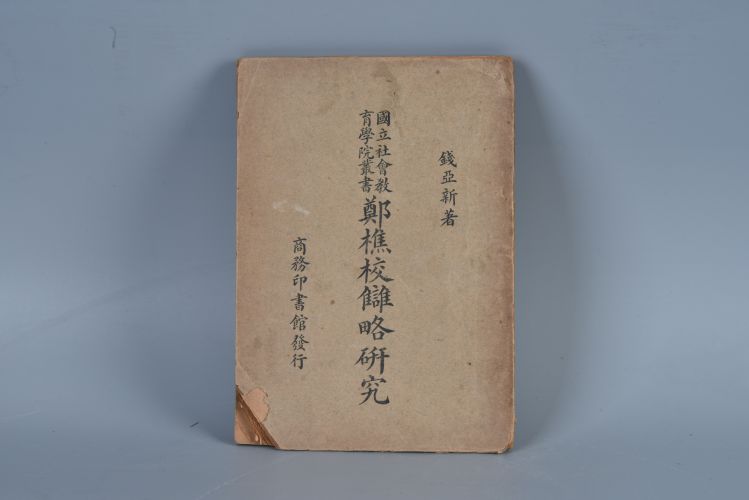 錢亞新著
國立社會教
育學院叢書
鄭樵校讎略研究
商務印書館發行